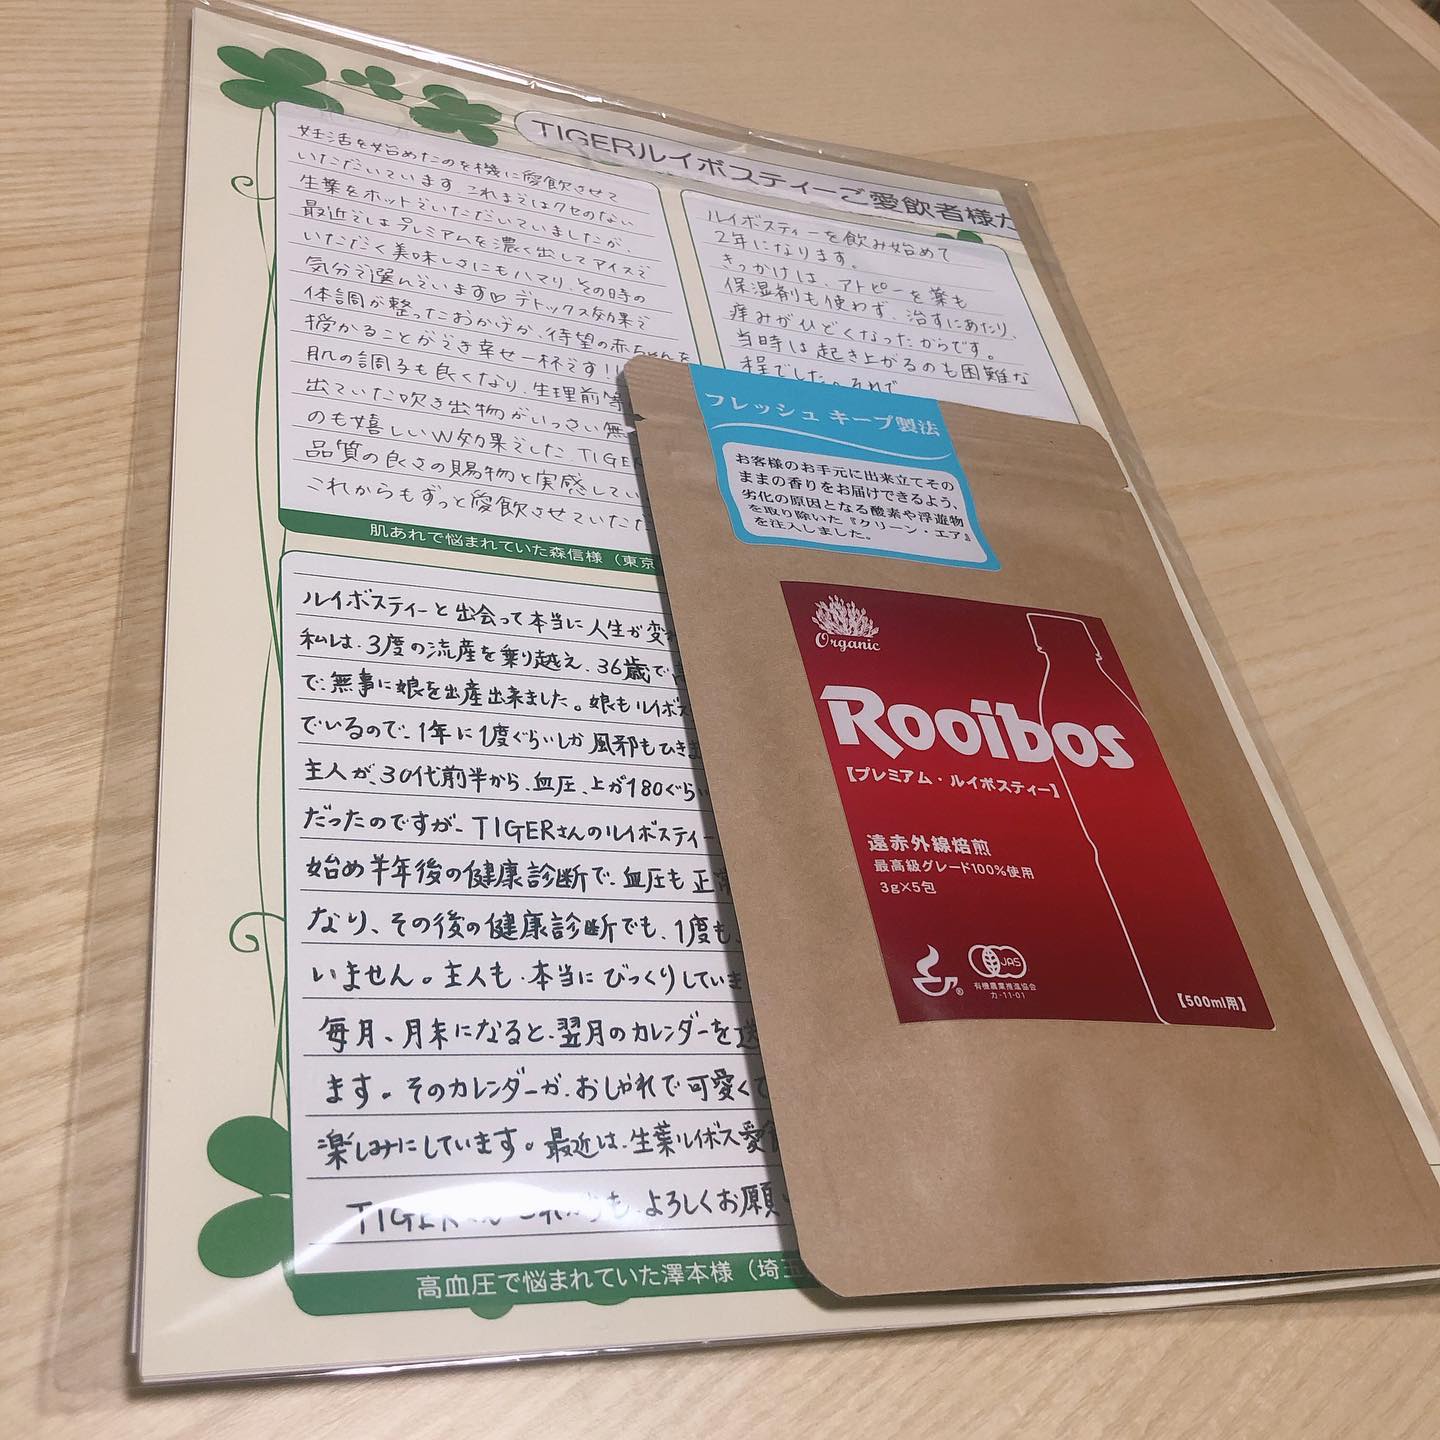 TIGERルイボスティーご愛飲者様か
妊活を始めたのを機に愛飲させて
いただいています。これまではクセのない
生葉をホットでいただいていましたが、
最近ではプレミアムを濃く出してアイスで
いただく美味しさにもハマり、その時の
気分で選んでいます♡ デトックス効果で
体調が整ったおかげか、待望の赤ちゃんを
授かることができ幸せ一杯です!!
肌の調子も良くなり、生理前等
出ていた吹き出物がいっさい無
のも嬉しいW効果でした。TIGER
品質の良さの賜物と実感してい
これからもずっと愛飲させていただ
肌あれで悩まれていた森信様（東京
ルイボスティーを飲み始めて
2年になります。
きっかけは、アトピーを薬も
保湿剤も使わず、治すにあたり、
痒みがひどくなったからです。
当時は起き上がるのも困難な
程でした。それで
ルイボスティーと出会って本当に人生が変
私は、3度の流産を乗り越え、36歳で
で、無事に娘を出産出来ました。娘もルイボス
でいるので、1年に1度ぐらいしか風邪もひきま
主人が、30代前半から、血圧、上が180ぐら
だったのですが、TIGERさんのルイボスティー
始め半年後の健康診断で、血圧も正
なり、その後の健康診断でも、1度も
いません。主人も、本当にびっくりしていま
毎月、月末になると、翌月のカレンダーを送
ます。そのカレンダーが、おしゃれで可愛くて
楽しみにしています。最近は、生葉ルイボス愛
TIGERさん これからも、よろしくお願い
高血圧で悩まれていた澤本様（埼玉
フレッシュ キープ製法
お客様のお手元に出来立てその
ままの香りをお届けできるよう、
劣化の原因となる酸素や浮遊物
を取り除いた『クリーン・エア』
を注入しました。
Organic
Rooibos
【プレミアム・ルイボスティー】
遠赤外線焙煎
最高級グレード100%使用
3g×5包
JAS
有機農業推進協会
カ-11-01
【500ml用】